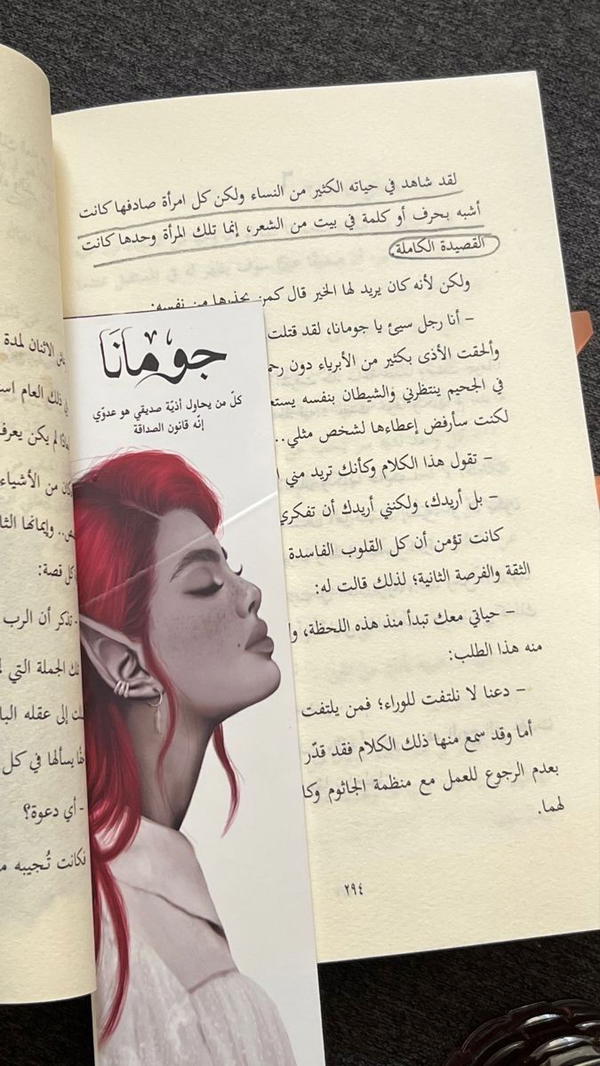 لقد شاهد في حياته الكثير من النساء ولكن كل امرأة صادفها كانت
أشبه بحرف أو كلمة في بيت من الشعر، إنما تلك المرأة وحدها كانت
القصيدة الكاملة
ولكن لأنه كان يريد لها الخير قال كمن يحذرها من نفسه:
– أنا رجل سيئ يا جومانا، لقد قتلت
وألحقت الأذى بكثير من الأبرياء دون
في الجحيم ينتظرني والشيطان بنفسه
لكنت سأرفض إعطاءها لشخص مثلي..
– تقول هذا الكلام وكأنك تريد مني
– بل أريدك، ولكنني أريدك أن تفكري
كانت تؤمن أن كل القلوب الفاسدة
الثقة والفرصة الثانية؛ لذلك قالت له:
– حياتي معك تبدأ منذ هذه اللحظة،
منه هذا الطلب:
– دعنا لا نلتفت للوراء؛ فمن يلتفت
أما وقد سمع منها ذلك الكلام فقد قدّر
بعدم الرجوع للعمل مع منظمة الجاثوم
لهما.
٢٩٤
جومانَا
كلّ من يحاول أذيّة صديقي هو عدوّي
إنّه قانون الصداقة
الاثنان لمدة
ذلك العام
لم يكن يعرف
من الأشياء
وإيمانها
كل قصة:
تذكر أن الرب
الجملة التي
إلى عقله
يسألها في كل
- أي دعوة؟
فكانت تُجيبه